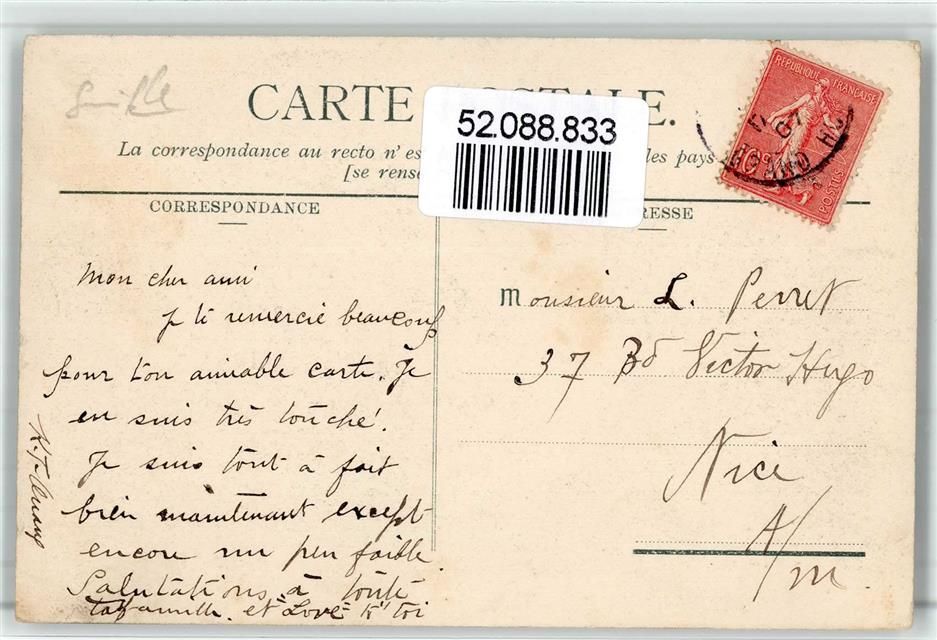 CARTE
52.088.833
La correspondance au recto n'es les pays
[se rense
CORRESPONDANCE
RESSE
REPUBLIQUE FRANÇAISE
10c
POSTES
Mon cher ami
Je te remercie beaucoup
pour ton aimiable carte. Je
en suis très touché.
Je suis tout à fait
bien maintenant except
encore un peu faible
Salutations à toute
ta famille. et "Love" to toi
Monsieur L. Perret
37 Bd Victor Hugo
Nice
A/m.